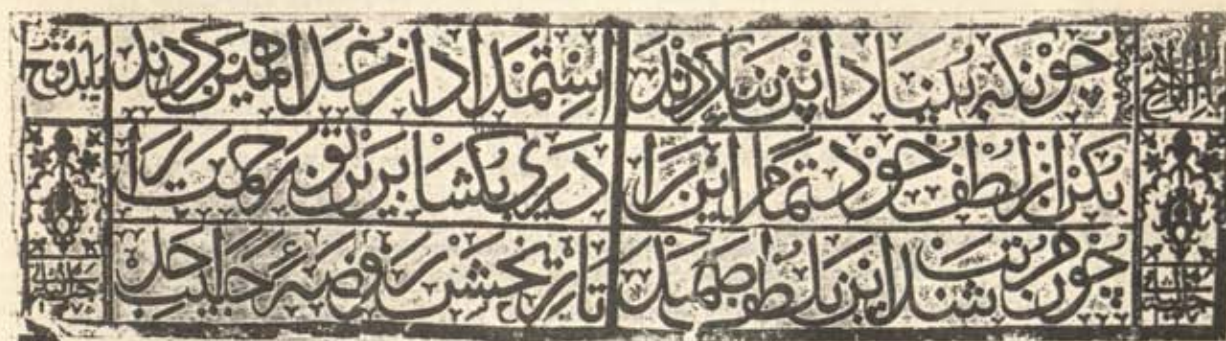 چونکه بنیاد این بنا کردند استمداد از خدا همین کردند
بکن از لطف خود تمام این را دری بکشا برین تو رحمت را
چون مرتب شد این بلطف صمد تاریخش روضهٔ حبیب